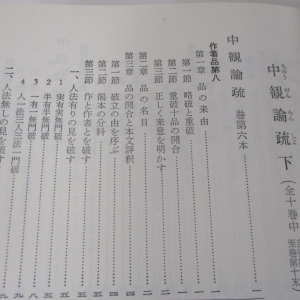 中観論疏 下
ちゅうがんろんしょ
（全十巻中
至巻第十末
中観論疏 巻第六本
作者品第八
第一章 品の来由
第一節 略破と重破
第二節 重破十品の開合
第三節 正しく来意を明かす
第二章 品の名目
第三章 品の開合と本文評釈
第一節 破立の由を序ぶ
第二節 偈本の分科
第三節 作と作者とを破す
一、人法有りの見を破す
1 実有実無門破
2 半有半無門破
3 一有一無門破
4 人一法二人三法一門破
二、人法無しの見を破す